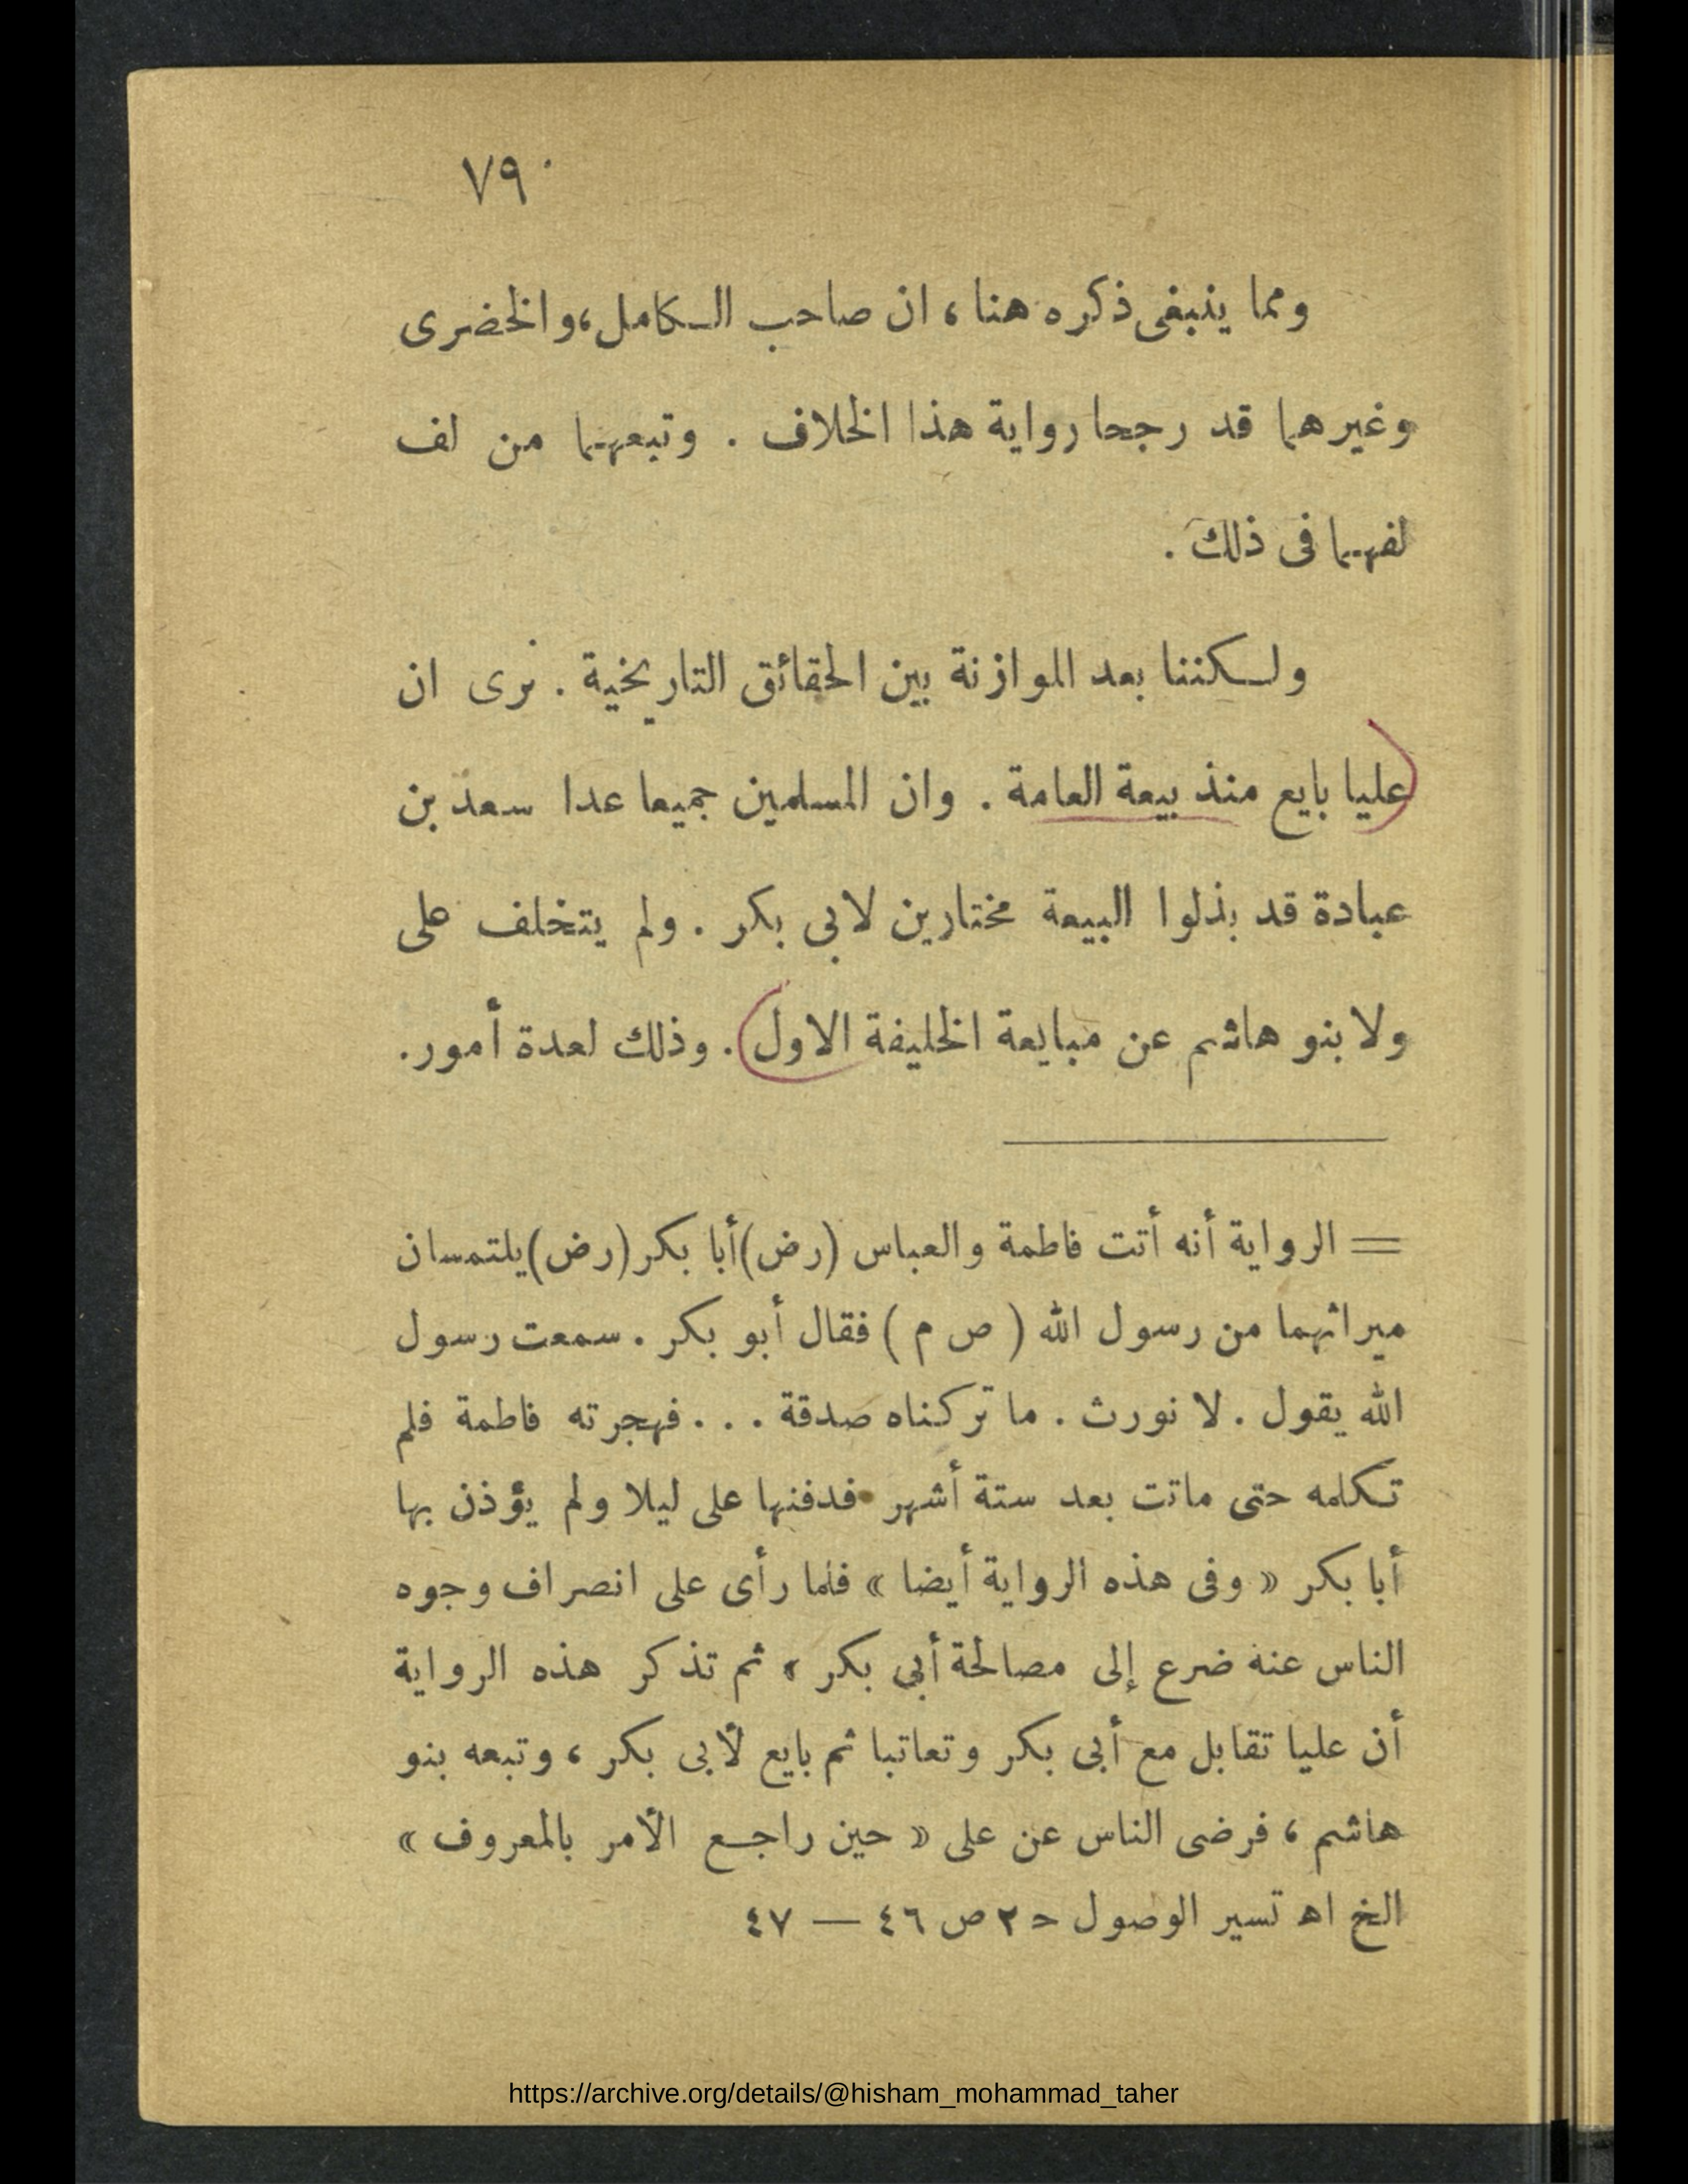 ٧٩
ومما ينبغى ذكره هنا ، ان صاحب الكامل ، والخضرى
وغيرهما قد رجحا رواية هذا الخلاف . وتبعهما من لف
لفهما فى ذلك .
ولكننا بعد الموازنة بين الحقائق التاريخية . نرى ان
عليا بايع منذ بيعة العامة . وان المسلمين جميعا عدا سعد بن
عبادة قد بذلوا البيعة مختارين لابى بكر . ولم يتخلف على
ولا بنو هاشم عن مبايعة الخليفة الاول . وذلك لعدة أمور .
= الرواية أنه أتت فاطمة والعباس (رض) أبا بكر (رض) يلتمسان
ميراثهما من رسول الله ( ص م ) فقال أبو بكر . سمعت رسول
الله يقول . لا نورث . ما تركناه صدقة . . . فهجرته فاطمة فلم
تكلمه حتى ماتت بعد ستة أشهر فدفنها على ليلا ولم يؤذن بها
أبا بكر « وفى هذه الرواية أيضا » فلما رأى على انصراف وجوه
الناس عنه ضرع إلى مصالحة أبى بكر ، ثم تذكر هذه الرواية
أن عليا تقابل مع أبى بكر وتعاتبا ثم بايع لأبى بكر ، وتبعه بنو
هاشم ، فرضى الناس عن على « حين راجع الأمر بالمعروف »
الخ اه تسير الوصول ح ٢ ص ٤٦ — ٤٧
https://archive.org/details/@hisham_mohammad_taher